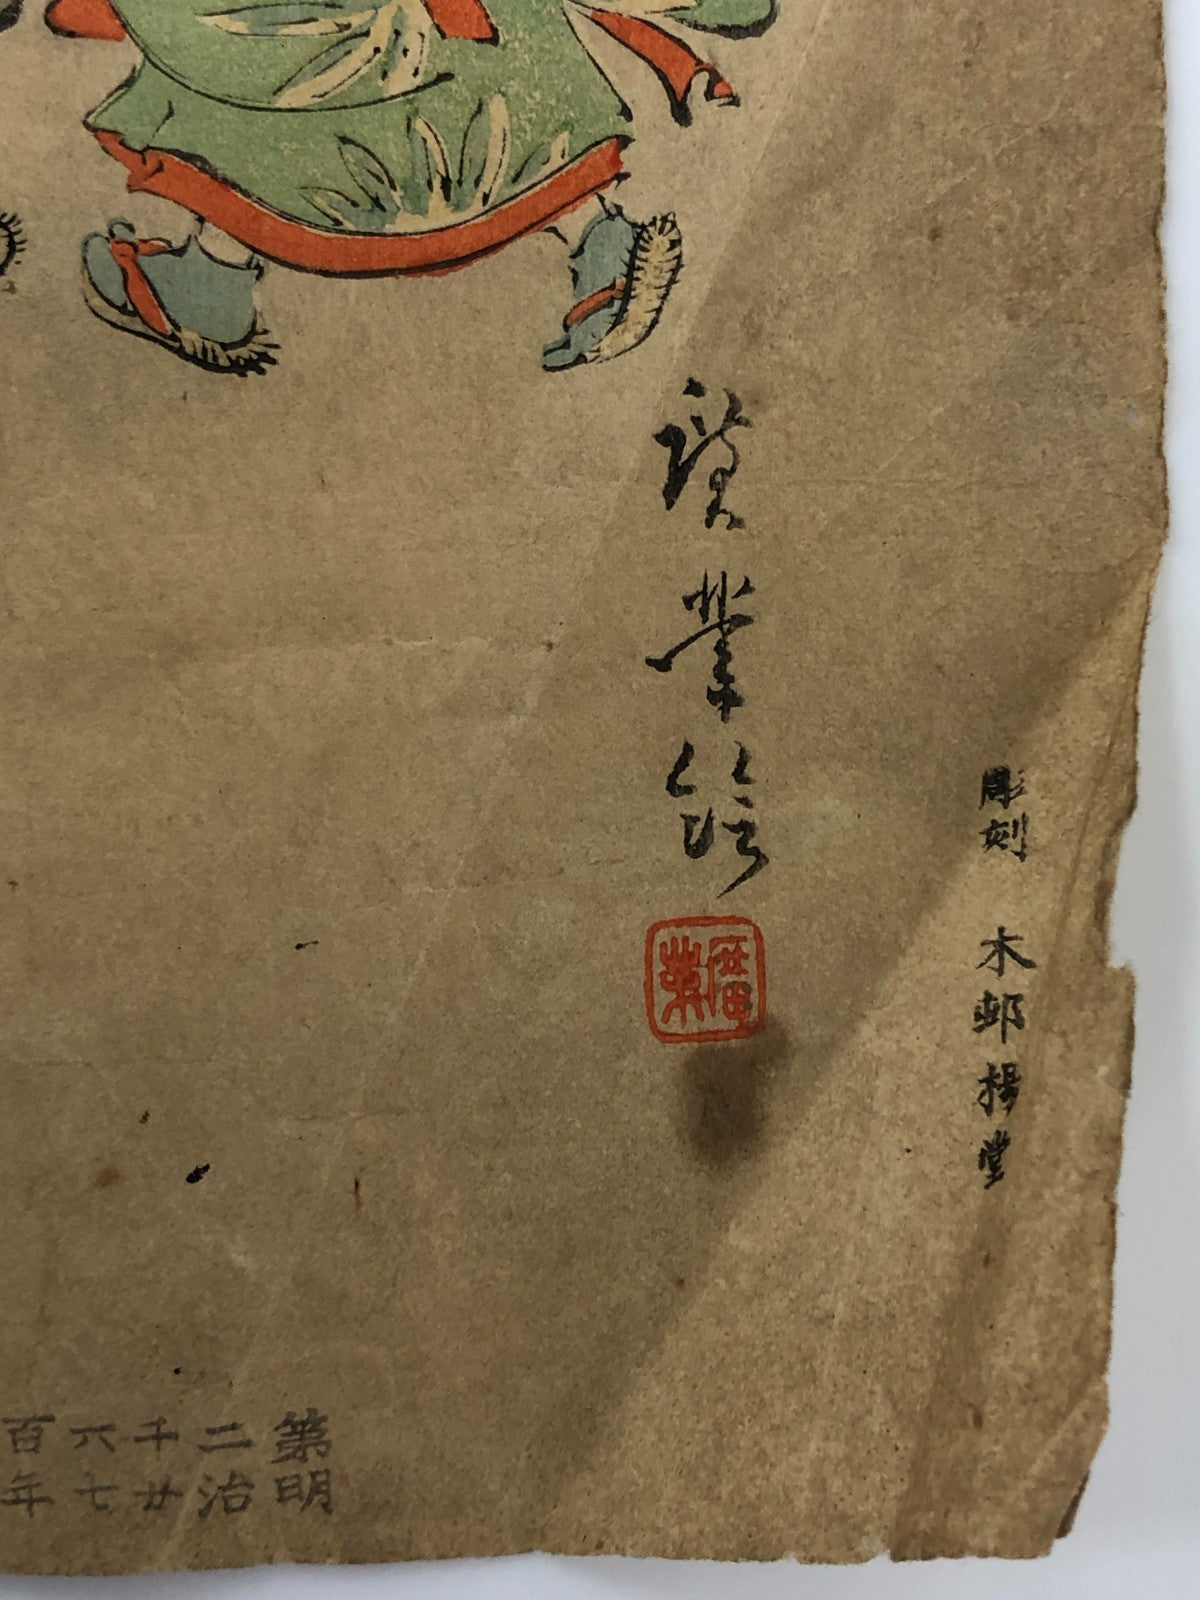 廣業
廣業
彫刻 木邨楊堂
第二千六百
明治廿七年